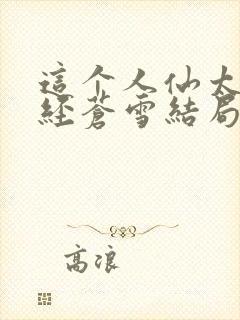 這个人仙太
經蒼雪結局
高浪